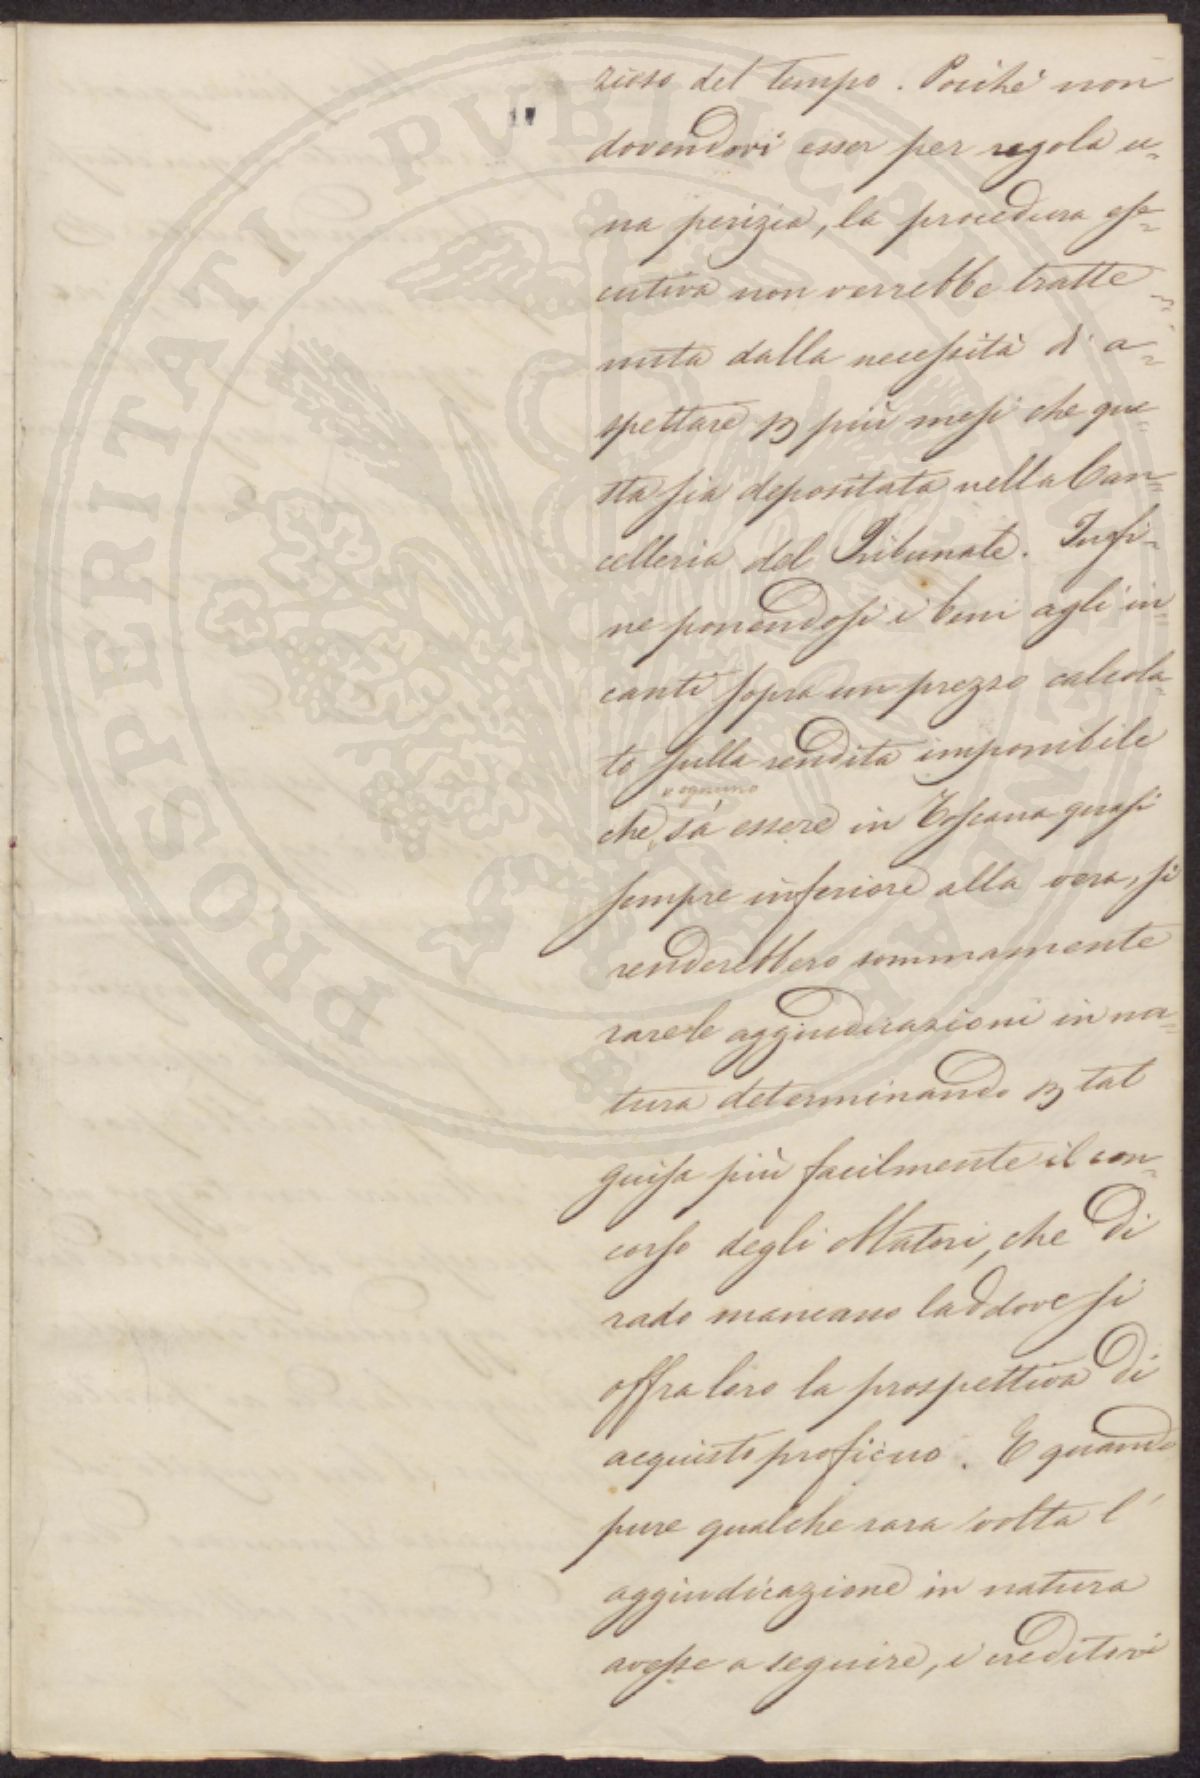 zioso del tempo. Poichè non
dovendovi esser per regola u=
na perizia, la procedura ese=
cutiva non verrebbe tratte=
nuta dalla necessità di a=
spettare p più mesi che que=
sta sia depositata nella Can=
celleria del Tribunale. Infi=
ne ponendosi i beni agli in=
canti sopra un prezzo calcola=
to sulla rendita imponibile
ognuno
che sà essere in Toscana quasi
sempre inferiore alla vera, si
renderebbero sommamente
rare le aggiudicazioni in na=
tura determinando p tal
guisa più facilmente il con=
corso degli Oblatori, che di
rado mancano laddove si
offra loro la prospettiva di
acquisto proficuo. E quando
pure qualche rara volta l'
aggiudicazione in natura
avesse a seguire, i creditori
PROSPERITATI PVBLICAE AVGENDAE